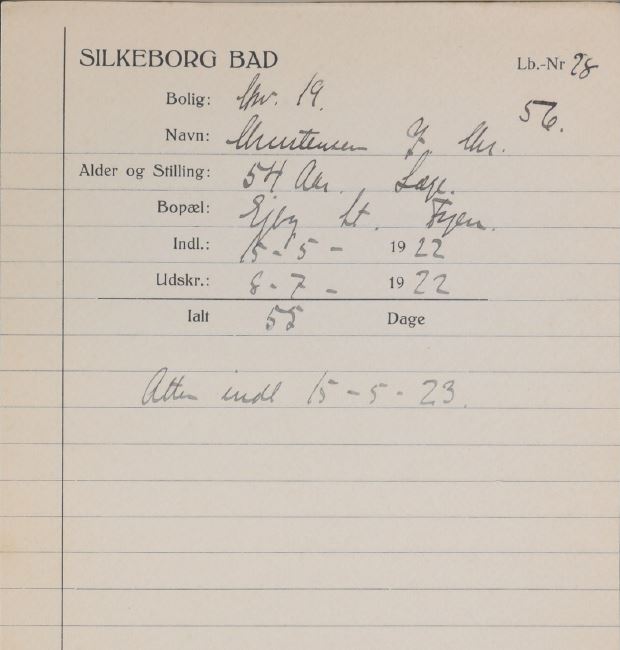 SILKEBORG BAD
Lb.-Nr 28
Bolig: 19.
56.
Navn: Christensen J. Chr.
Alder og Stilling: 54 Aar. Læge.
Bopæl: Ejby St. Fyen.
Indl.: 15-5- 1922
Udskr.: 8-7- 1922
Ialt 55 Dage
Atter indl 15-5-23.